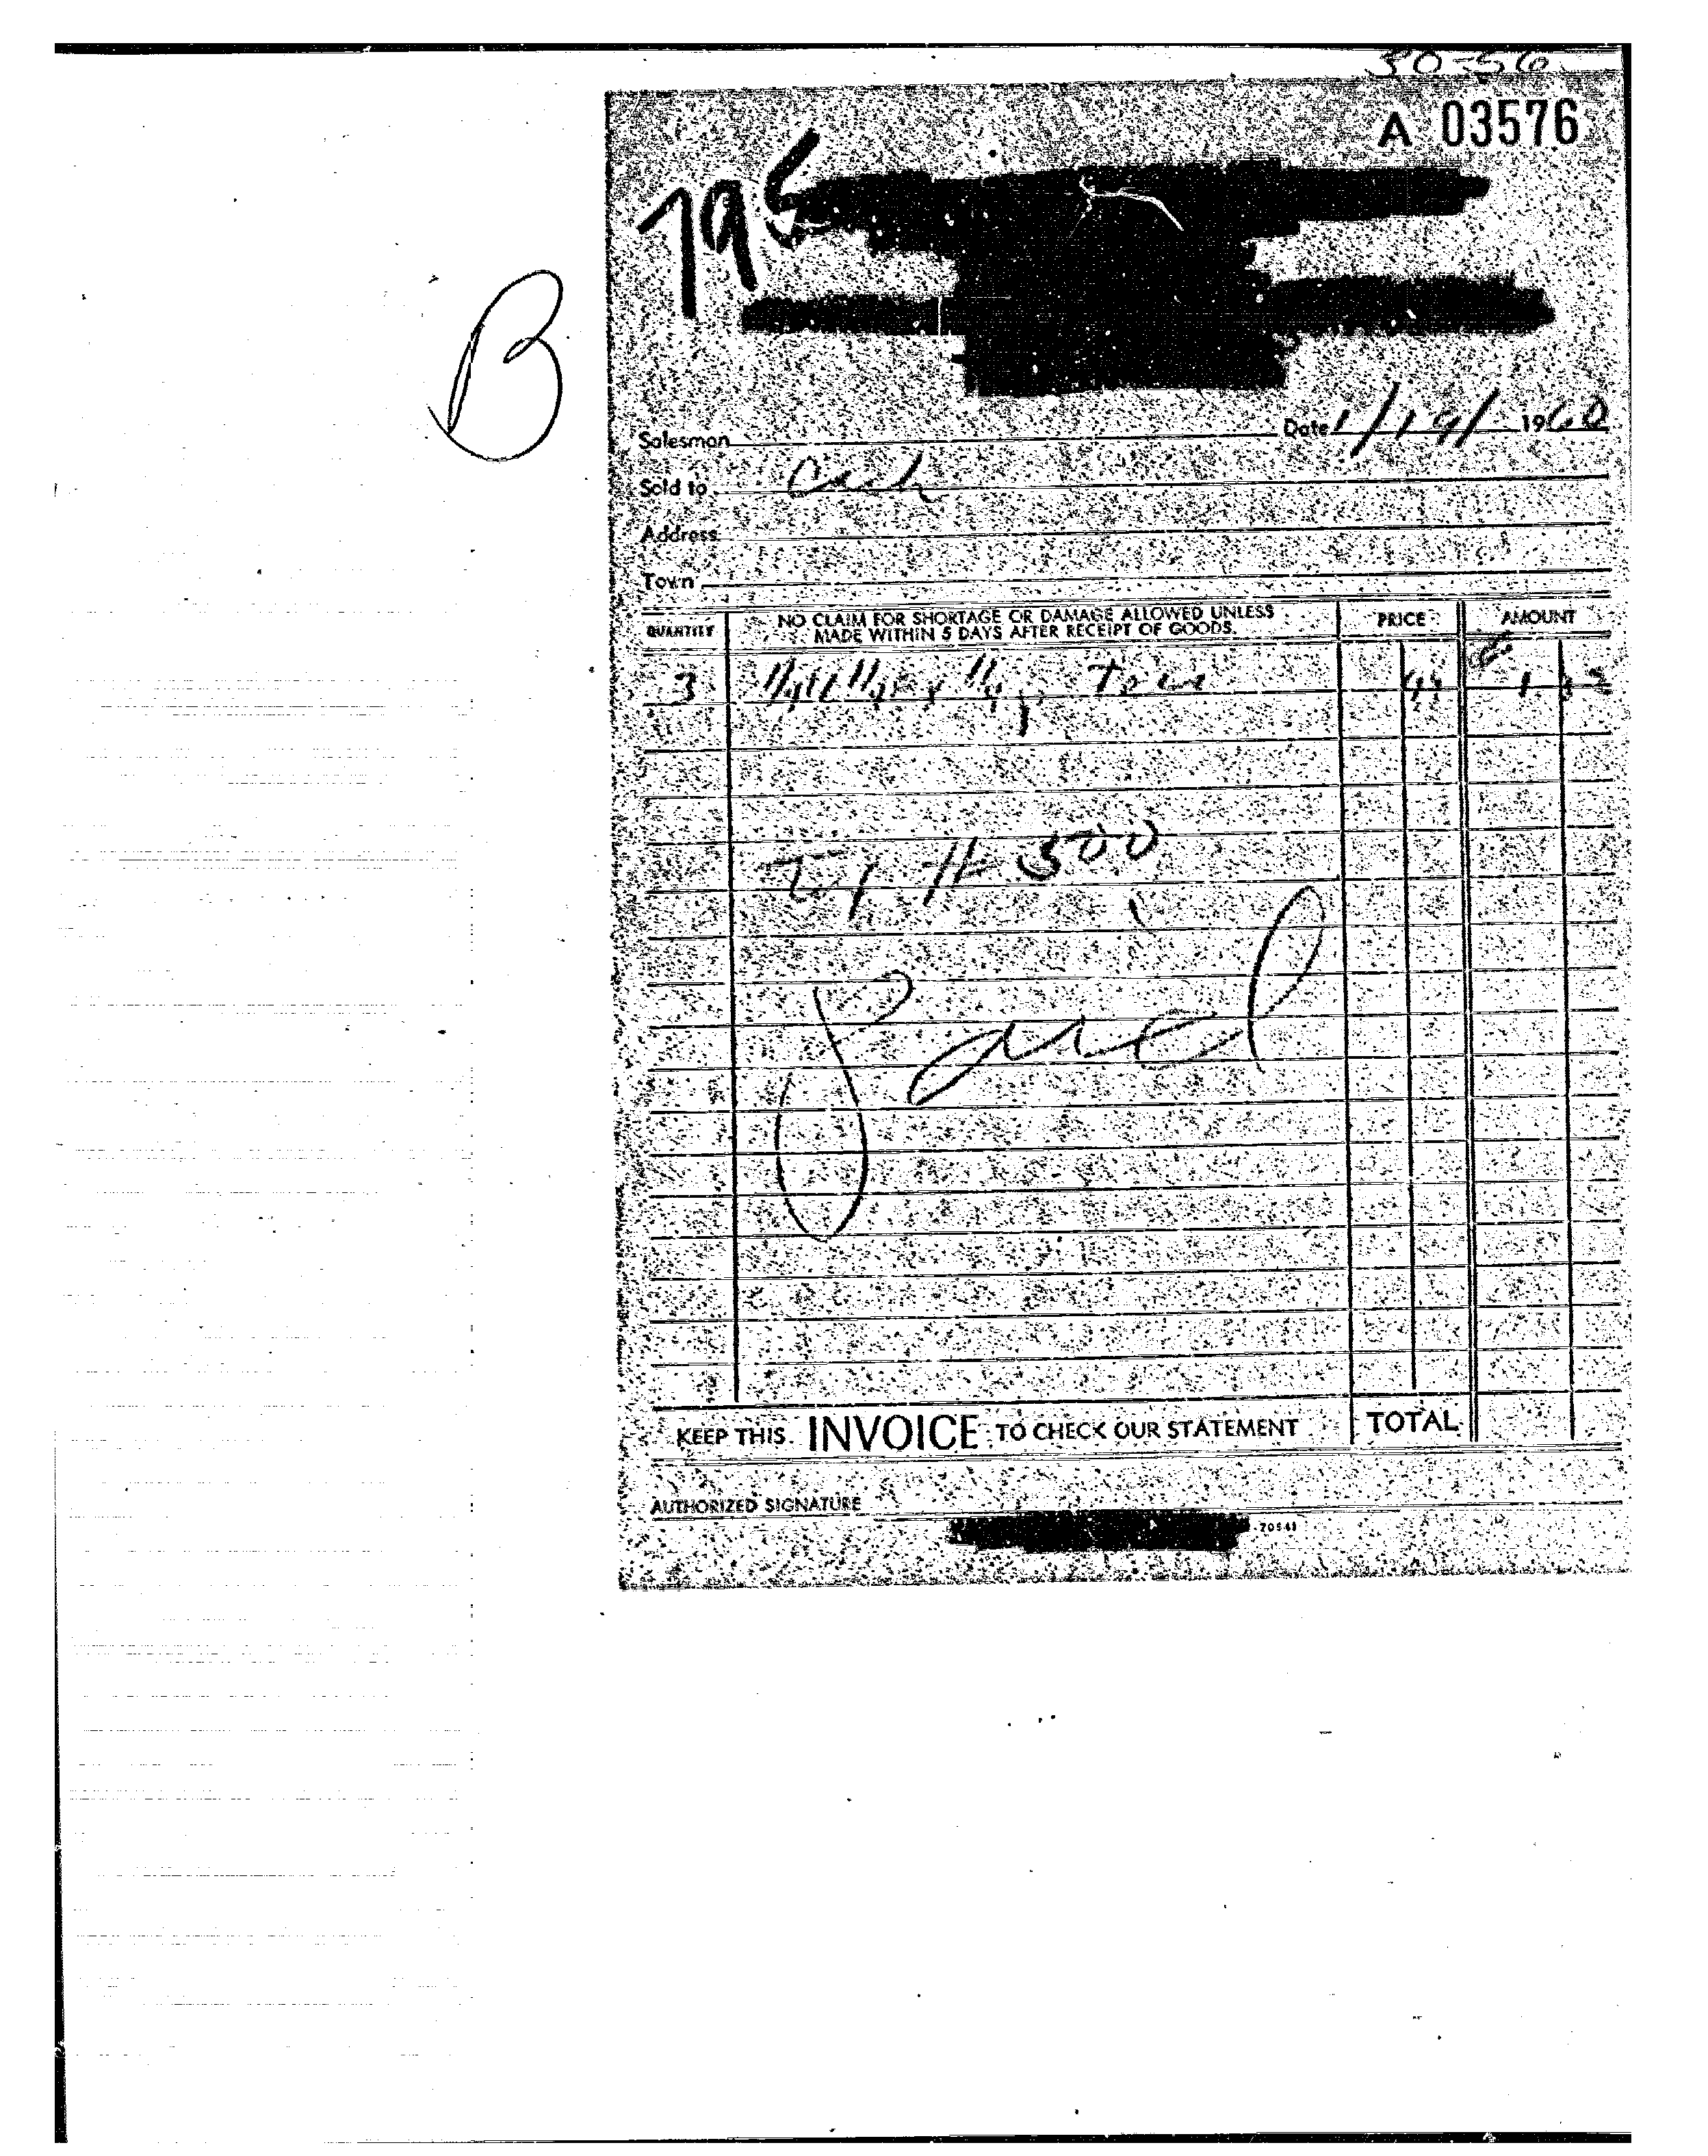 30-56
A 03576
795
B
Salesman Date 1/19/ 1960
Sold to Cash
Address
Town
QUANTITY NO CLAIM FOR SHORTAGE OR DAMAGE ALLOWED UNLESS MADE WITHIN 5 DAYS AFTER RECEIPT OF GOODS. PRICE AMOUNT
3 44 1
# 500
Paid
KEEP THIS INVOICE TO CHECK OUR STATEMENT TOTAL
AUTHORIZED SIGNATURE